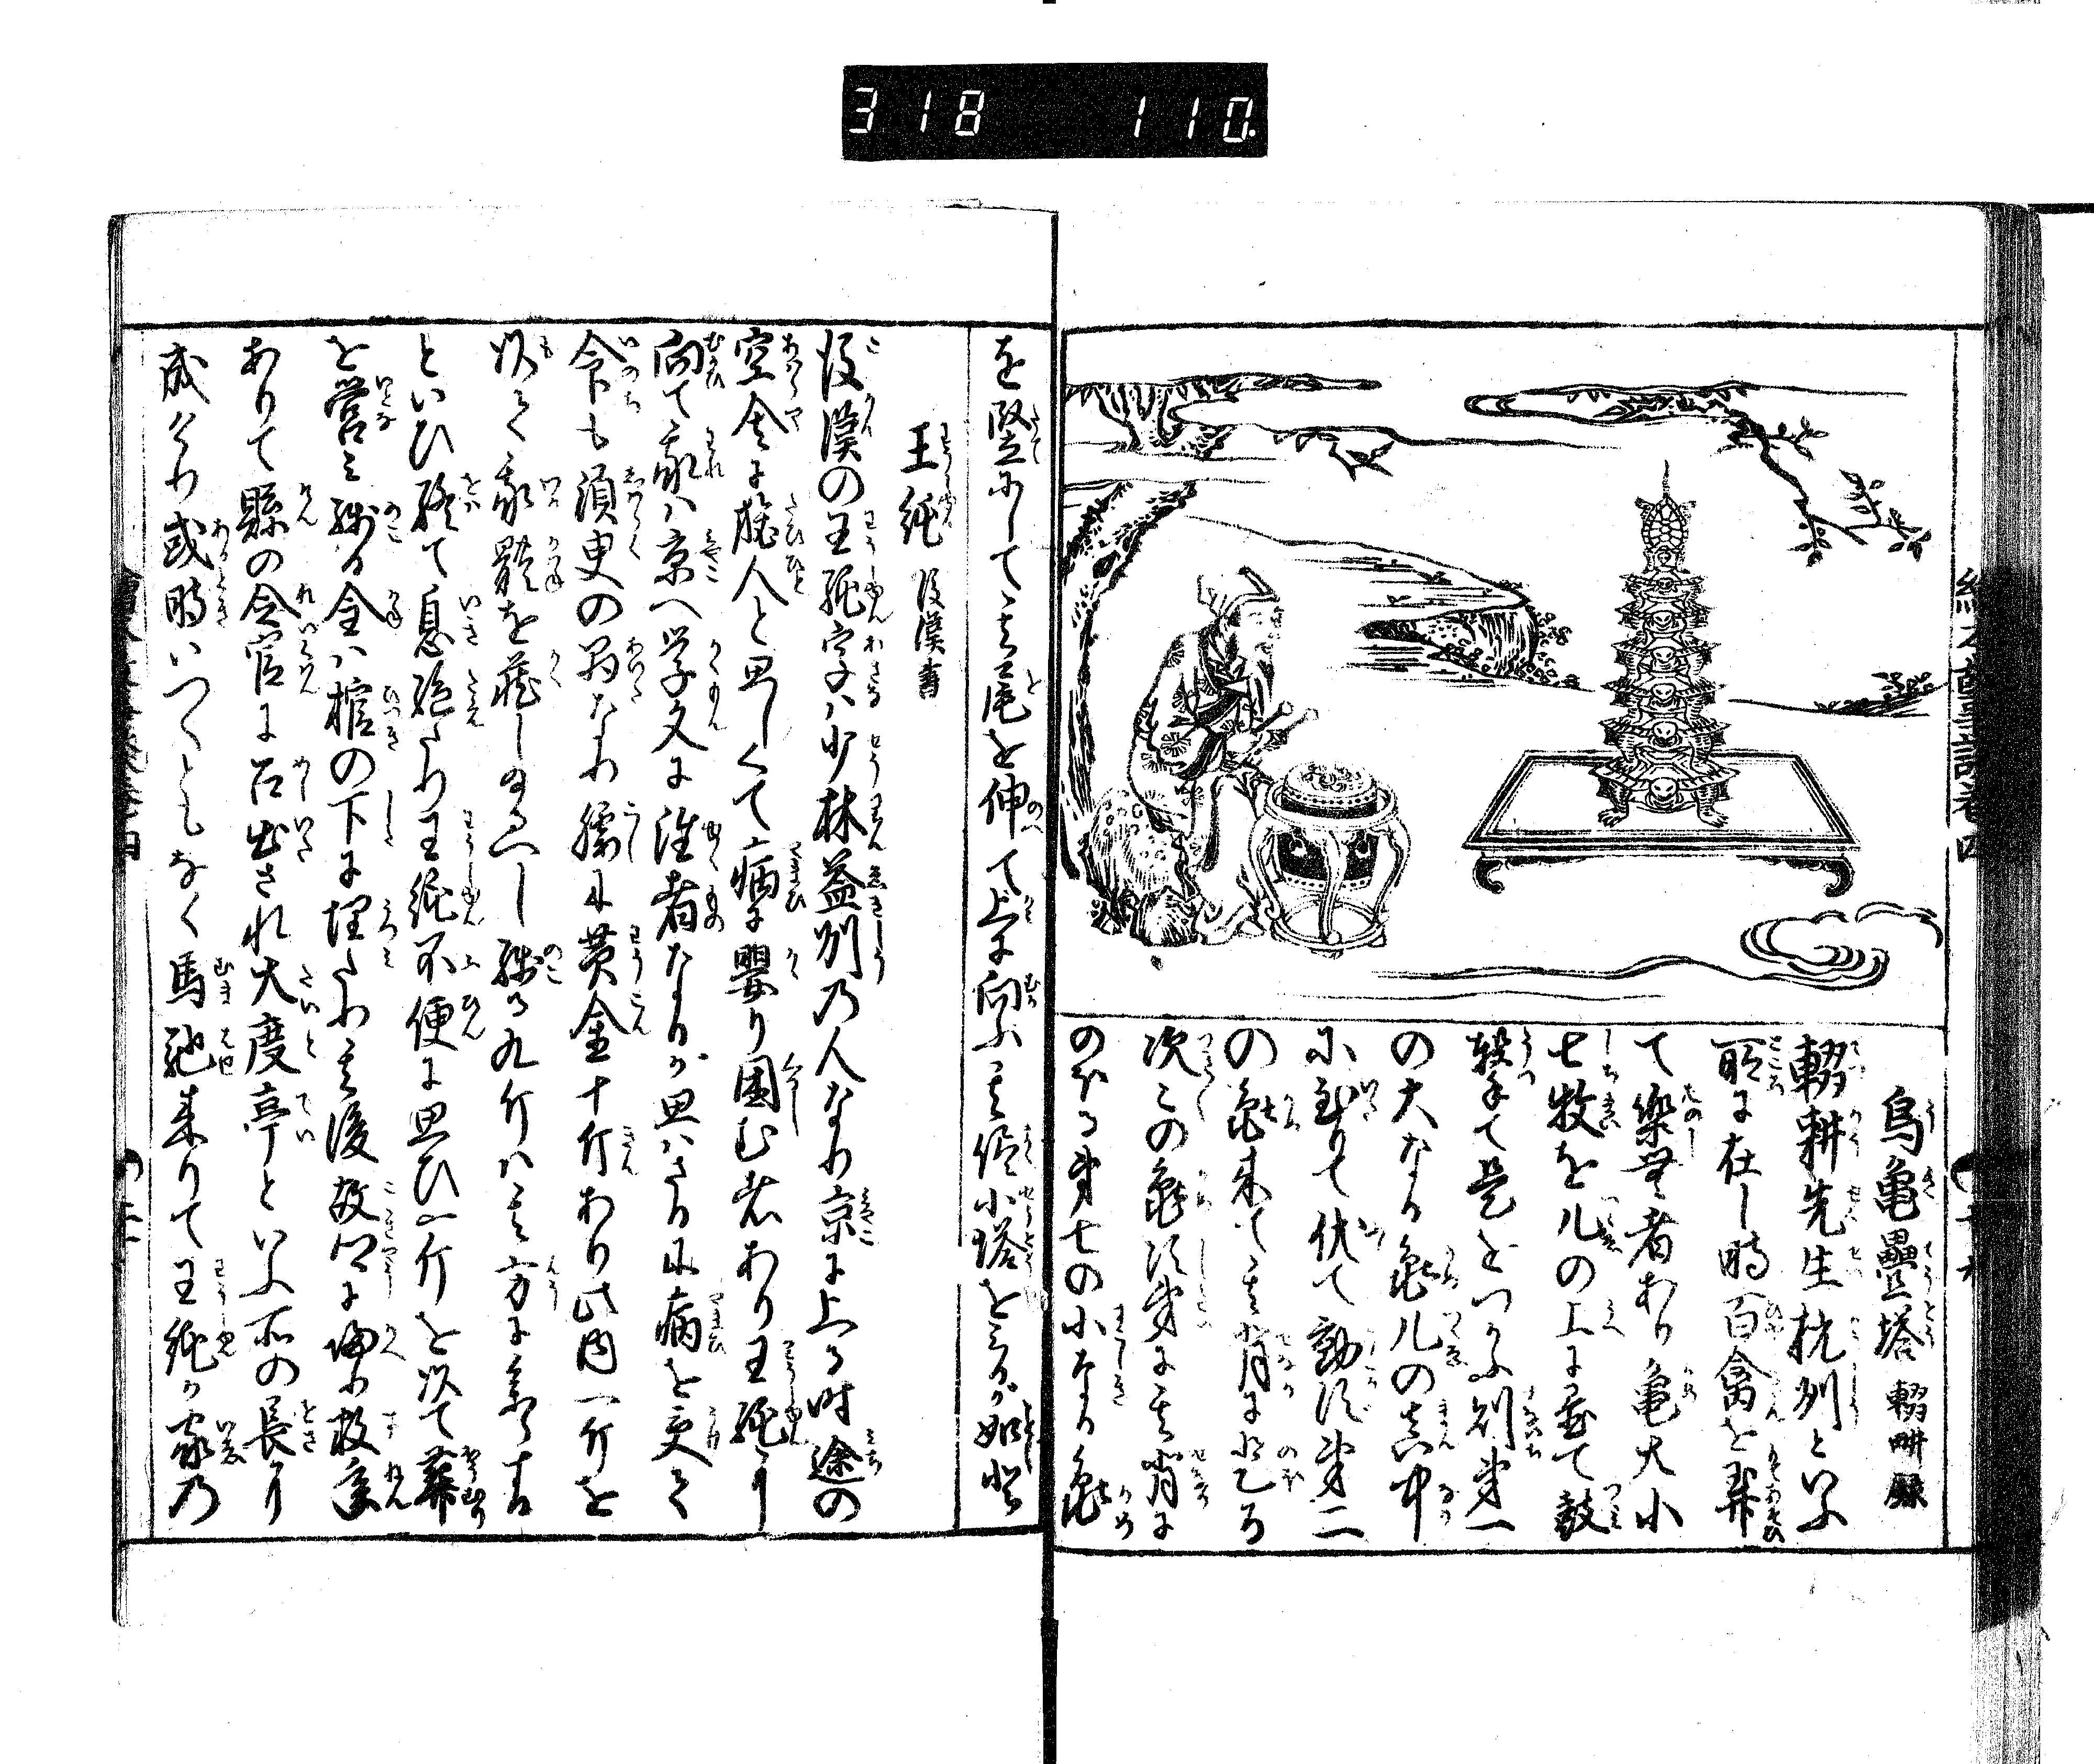 318 110.
烏亀疊塔 輟畊録
輟耕先生杭州といふ
所に在し時百禽を弄
て楽む者あり亀大小
七枚を几の上に置て鼓
撃て是をつかふ則第一
の大なる亀几の真中
に到りて伏て動ず第二
の亀来て其背に登る
次この亀次第に其背に
のぼる第七の小なる亀
を竪にして其尾を伸て上に向ふ其侭小塔をみるが如學
王純 後漢書
後漢の王純字ハ少林益州乃人なり京に上る時途の
空舎に旅人と思しくて病に嬰り困む者あり王純に
向て我ハ京へ学文に往者なりが思ハざるに病を受て
命も須臾の間なり腰に黄金十斤あり此内一斤を
以て我骸を蔵し給へし残る九斤ハ其方に参す
といひ終て息絶たり王純不便に思ひ一斤を以て葬
を営み残る金ハ棺の下に埋たり其後故郷に帰り数年
ありて縣の令官に召出され大度亭といふ所の長に
成けり或時いつくともなく馬馳来りて王純が家乃